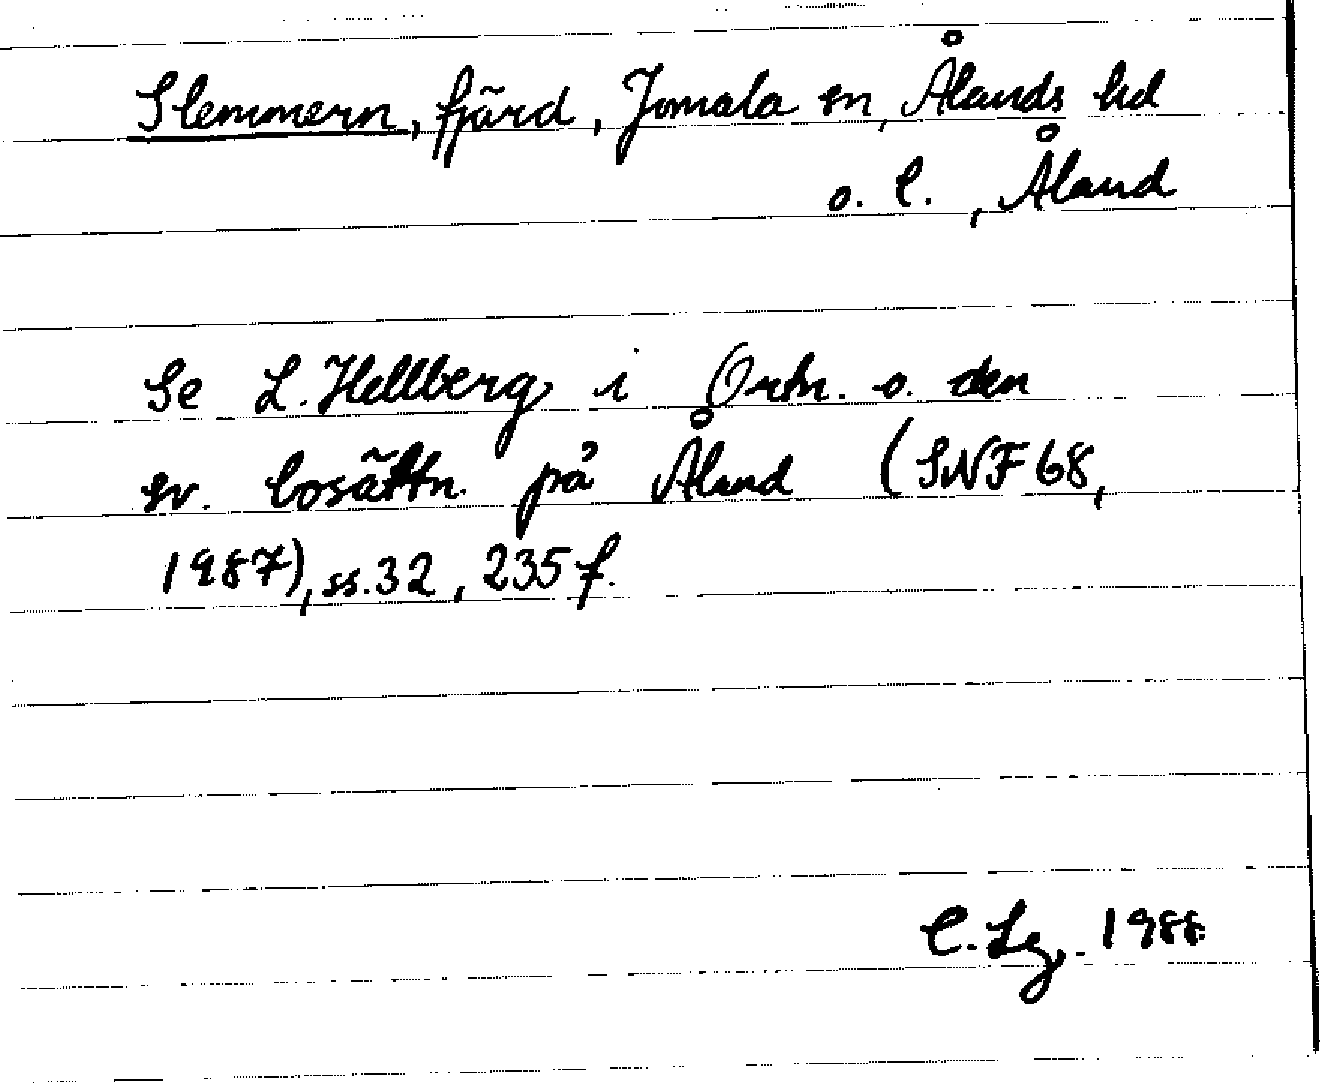 Slemmern, fjärd, Jomala sn, Ålands hd
o. l., Åland
Se L. Hellberg i Ortn. o. den
sv. bosättn. på Åland (SNF 68,
1987), ss. 32, 235 f.
C. Lg. 1988